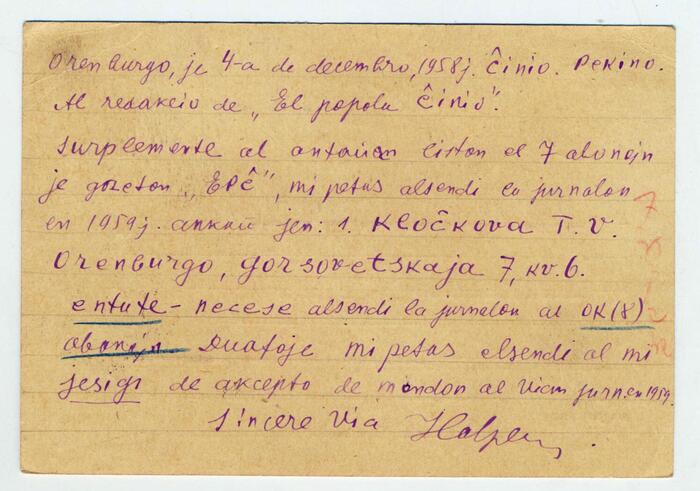 Orenburgo, je 4-a de decembro, 1958 j. Ĉinio. Pekino.
Al redakcio de „El popola Ĉinio".
Surplemente al antaŭan liston el 7 abonojn
je gazeton „EPĈ", mi petas alsendi la jurnalon
en 1959 j. ankaŭ jen: 1. Kloĉkova T. V.
Orenburgo, Gorsovetskaja 7, kv. 6.
entute - necese alsendi la jurnalon al OK (8)
abonojn Duafoje mi petas elsendi al mi
jesigi de akcepto de mondon al Vian jurn. en 1959.
Sincere Via Halpern.